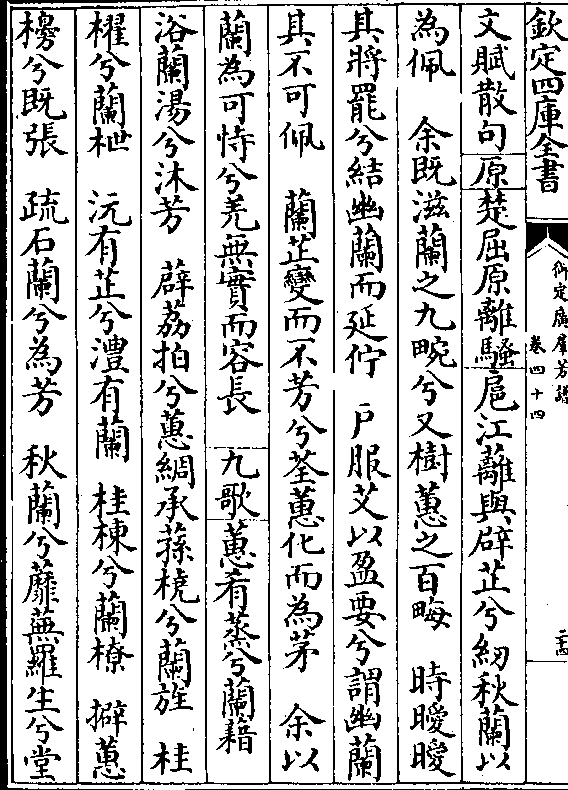 欽定四庫全書
御定廣羣芳譜
卷四十四
文賦散句原楚屈原離騷扈江蘺與辟芷兮紉秋蘭以
為佩　余既滋蘭之九畹兮又樹蕙之百畮　時曖曖
其將罷兮結幽蘭而延佇　戶服艾以盈要兮謂幽蘭
其不可佩　蘭芷變而不芳兮荃蕙化而為茅　余以
蘭為可恃兮羌無實而容長　九歌蕙肴蒸兮蘭籍
浴蘭湯兮沐芳　薜荔拍兮蕙綢承蓀橈兮蘭旌　桂
櫂兮蘭枻　沅有芷兮澧有蘭　桂棟兮蘭橑　擗蕙
櫋兮既張　疏石蘭兮為芳　秋蘭兮蘼蕪羅生兮堂